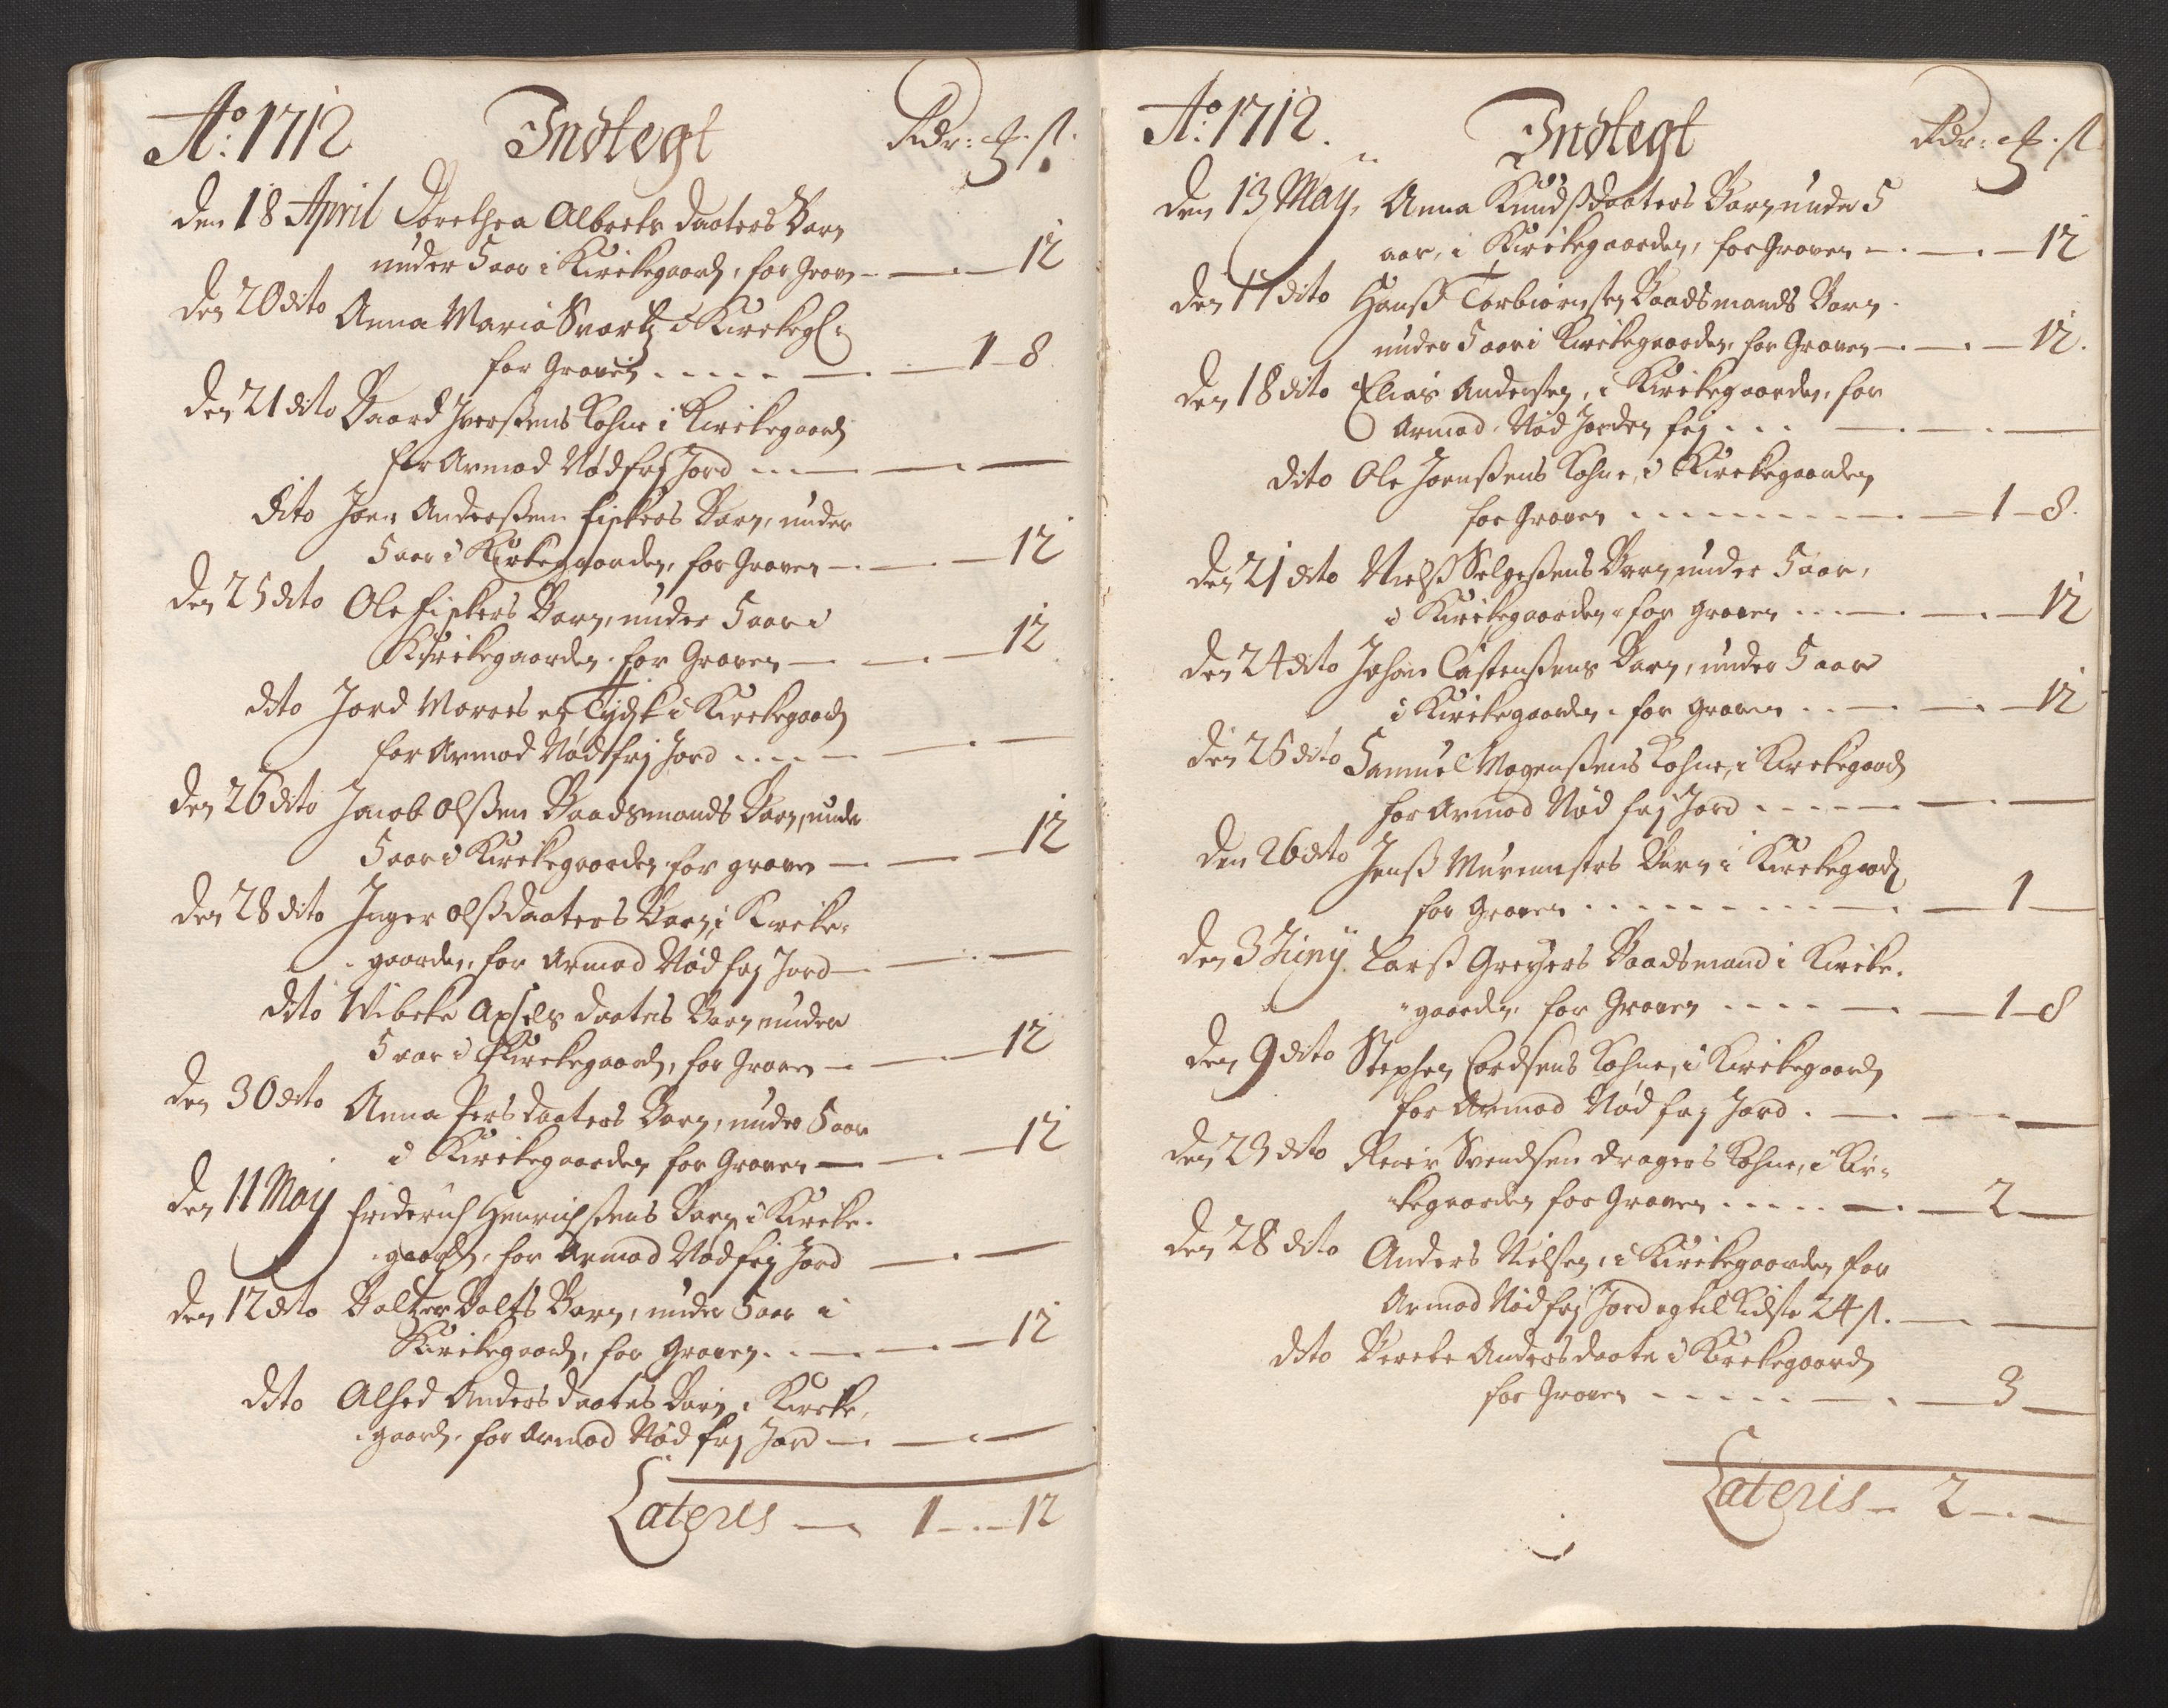 Ao: 1712 Indtegt Rdr: ɱ. ß.
den 18 April Dorethea Albrets daaters Barn
under 5 aar i Kirckegaard, for Grav 12
den 20 dito Anna Maria Svartz i Kirckeg:
for Graven 1 8
den 21 dito Baard Iverßens Kohne i Kirckegaard
for Armod Nød frj Jord
dito Joen Anderßen fiskers Barn, under
5 aar i Kirkegaarden, for Graven 12
den 25 dito Ole fiskers Barn, under 5 aar i
Kirckegaarden for Graven 12
dito Jord Mores en Tydsk i Kirckegaard
for Armod Nød frj Jord
den 26 dito Jacob Olßen Baadsmands Barn, under
5 aar i Kirckegaarden for graven 12
den 28 dito Inger Olßdaaters Barn, i Kircke-
gaarden, for Armod Nød frj Jord
dito Vibeke Axsels daaters Barn under
5 aar i Kirckegaard, for Graven 12
den 30 dito Anna Pers daaters Barn, under 5 aar
i Kirckegaarden for Graven 12
den 11 Maij Friderich Henrichßens Barn i Kircke-
gaard, for Armod Nød frj Jord
den 12 dito Baltzer Balts Barn, under 5 aar i
Kirckegaard, for Graven 12
dito Alhed Anders daaters Barn, i Kircke-
gaard, for Armod Nød frj Jord
Lateris 1 12
Ao: 1712. Indtegt Rdr: ɱ. ß
den 13 Maij, Anna Knudßdaaters Barn under 5
aar, i Kirckegaarden, for Graven 12
den 17 dito Hanß Torbiørnsen Baadsmands Barn
under 5 aar i Kirckegaarden, for Graven 12.
den 18 dito Elias Andersen, i Kirckegaarden, for
Armod, Nød Jorden frj
dito Ole Joenßens Kohne, i Kirckegaarden
for Graven 1 8.
den 21 dito Nielß Helgeßens Barn under 5 aar,
i Kirckegaarden for Graven 12
den 24 dito Johan Castenßens Barn, under 5 aar
i Kirckegaarden, for Graven 12
den 25 dito Samuel Mogenßens Kohne, i Kirckegaard
for Armod Nød frj Jord
den 26 dito Jenß Murmesters Barn i Kirckegaard
for Graven 1
den 3 Junij Larß Greyers Baadsmand i Kircke-
gaarden, for Graven 1 8
den 9 dito Stephen Cordsens Kohne, i Kirckegaard
for Armod Nød frj Jord
den 23 dito Reier Svendsen dragers Kohne, i Kir-
kegaarden for Graven 2
den 28 dito Anders Nielsen, i Kirckegaarden for
Armod Nød frj Jord og til Kiste 24 ß.
dito Berete Andersdaater i Kirckegaard
for Graven 3
Lateris 2